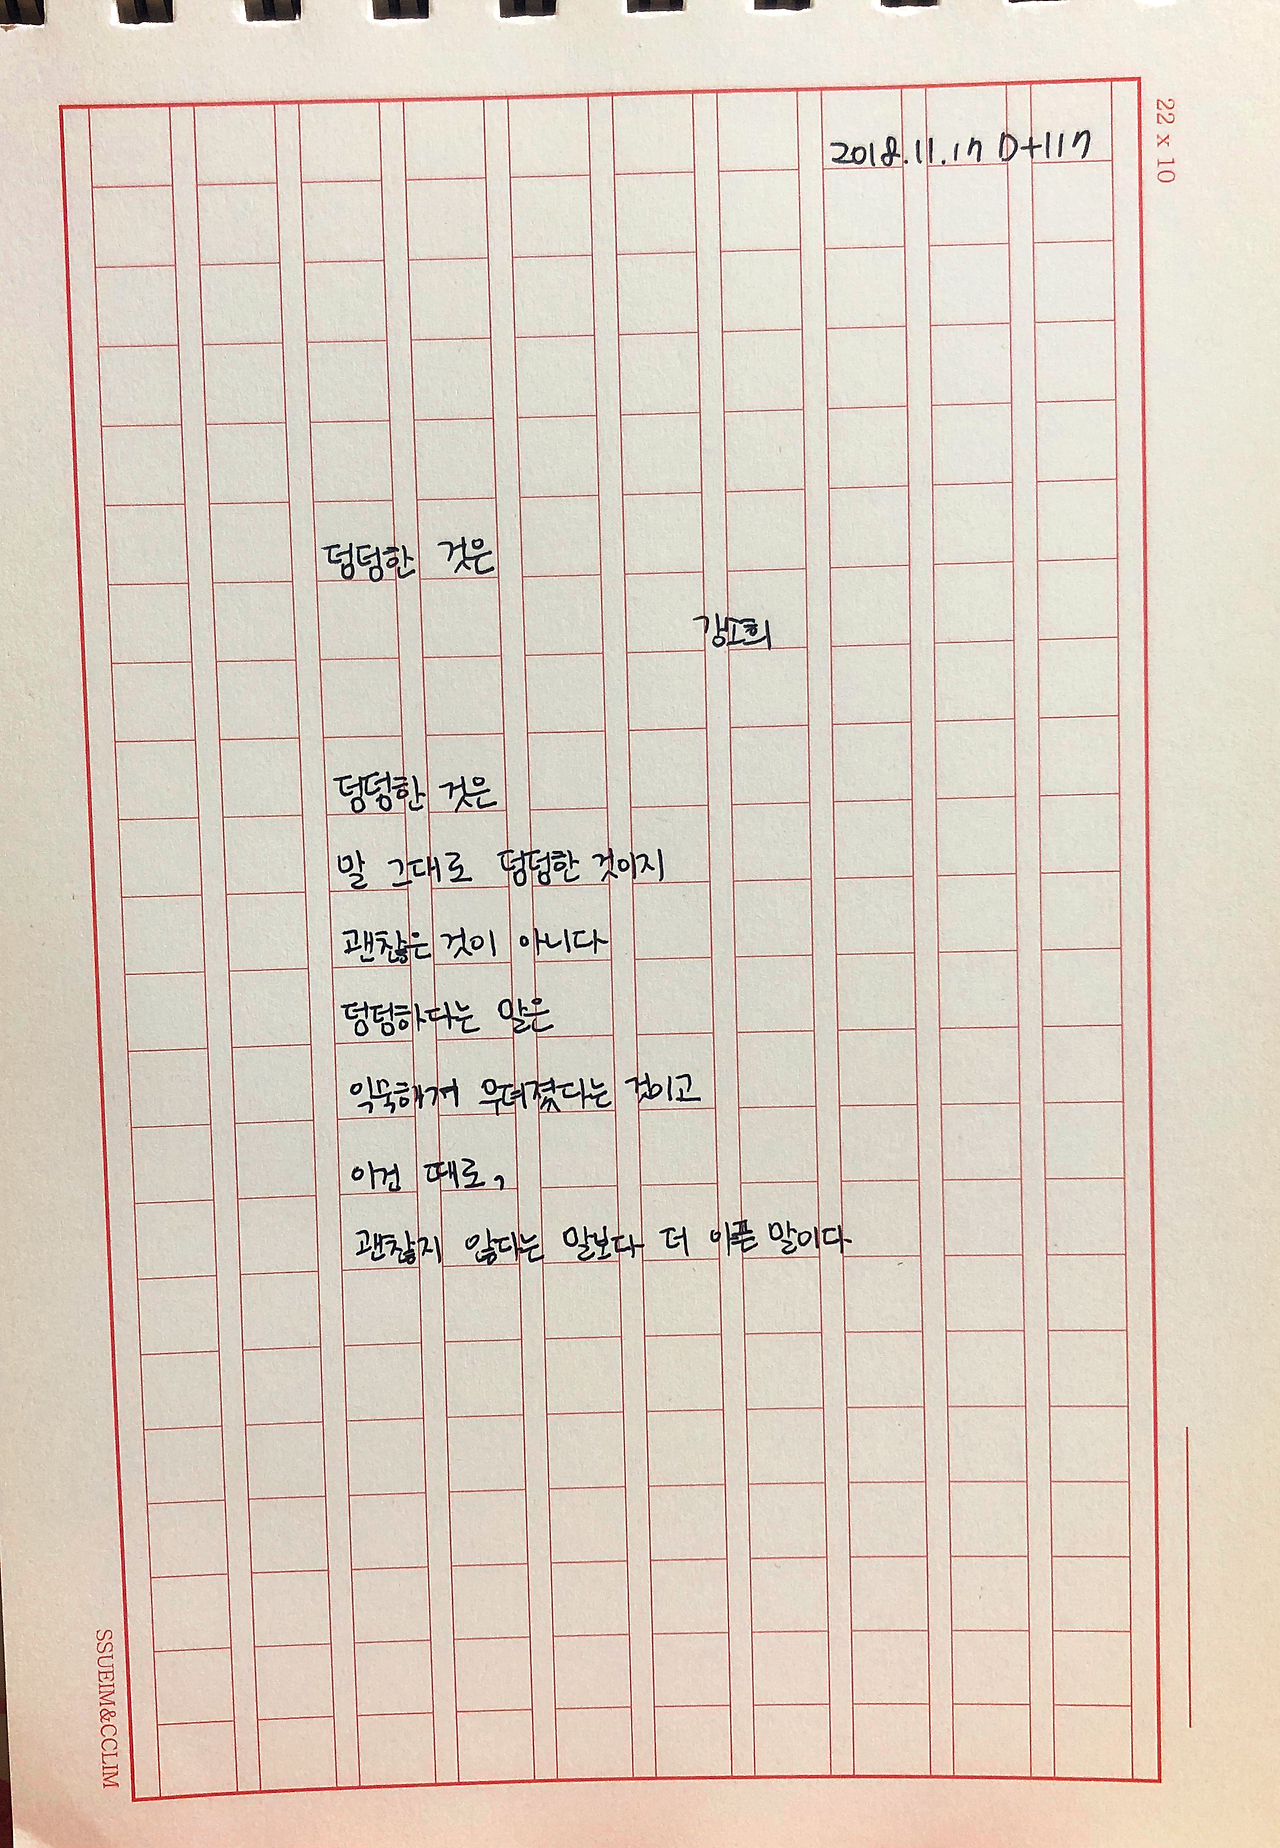 2018.11.17 D+117
덤덤한 것은
덤덤한 것은
말 그대로 덤덤한 것이지
괜찮은 것이 아니다
덤덤하다는 말은
익숙해져 무뎌졌다는 것이고
이건 때로,
괜찮지 않다는 말보다 더 아픈 말이다
22 x 10
SSUEIM&CCLIM